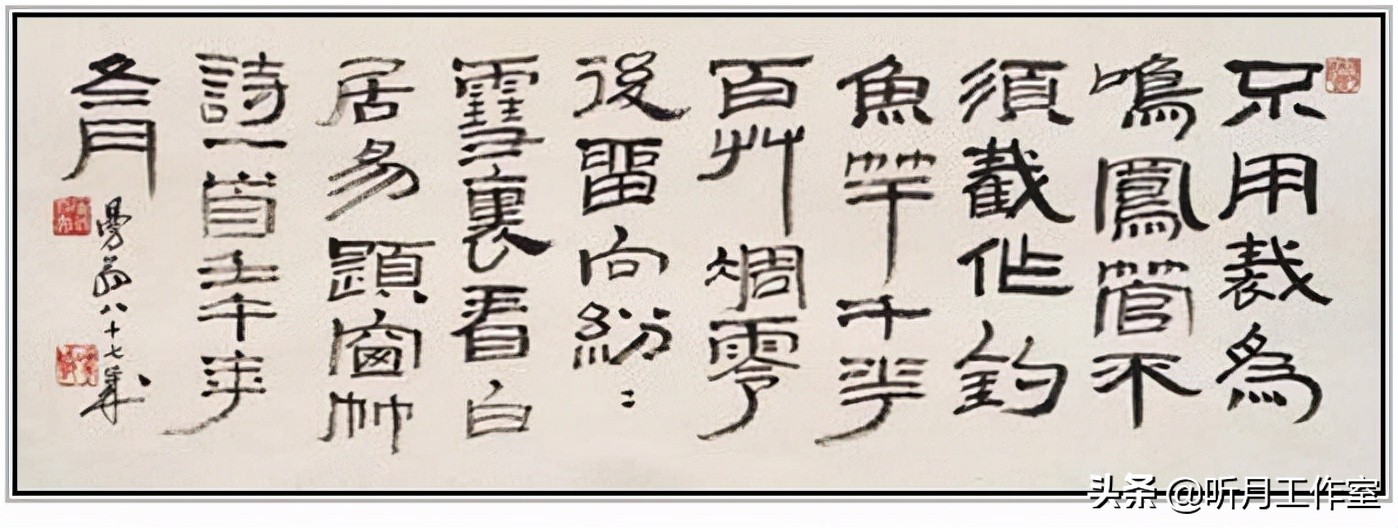 不用裁為
鳴鳳管不
須截作釣
魚竿千華
百艸凋零
後留向紛〻
雪裏看白
居易題窗竹
詩一首壬午年
冬月
曼翁八十七歲
头条 @听月工作室